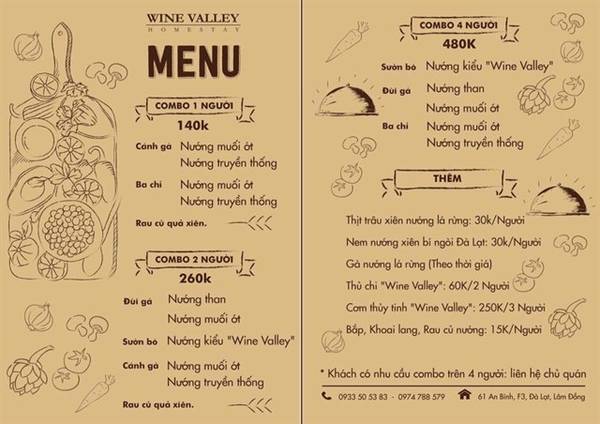 WINE VALLEY
HOMESTAY
MENU
COMBO 1 NGƯỜI
140k
Cánh gà Nướng muối ớt
Nướng truyền thống
Ba chỉ Nướng muối ớt
Nướng truyền thống
Rau củ quả xiên.
COMBO 2 NGƯỜI
260k
Đùi gà Nướng than
Nướng muối ớt
Sườn bò Nướng kiểu "Wine Valley"
Cánh gà Nướng muối ớt
Nướng truyền thống
Rau củ quả xiên.
COMBO 4 NGƯỜI
480K
Sườn bò Nướng kiểu "Wine Valley"
Đùi gà Nướng than
Nướng muối ớt
Ba chỉ Nướng muối ớt
Nướng truyền thống
THÊM
Thịt trâu xiên nướng lá rừng: 30k/Người
Nem nướng xiên bí ngòi Đà Lạt: 30k/Người
Gà nướng lá rừng (Theo thời giá)
Thủ chỉ "Wine Valley": 60K/2 Người
Cơm thủy tinh "Wine Valley": 250K/3 Người
Bắp, Khoai lang, Rau củ nướng: 15K/Người
* Khách có nhu cầu combo trên 4 người: liên hệ chủ quán
0933 50 53 83 - 0974 788 579 61 An Bình, F3, Đà Lạt, Lâm Đồng